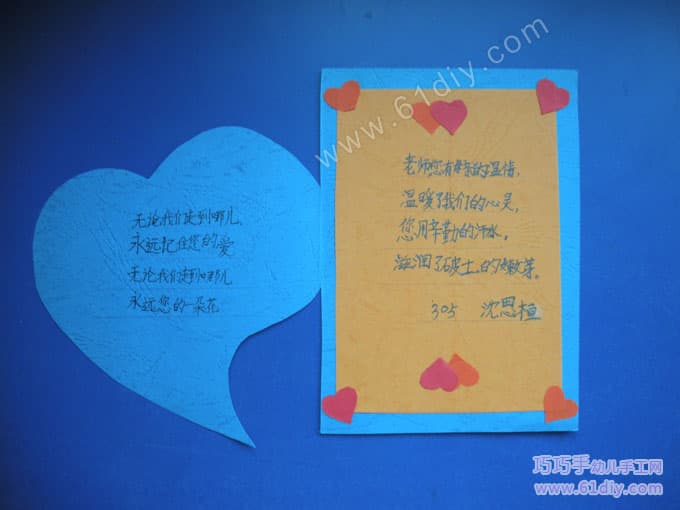 无论我们走到哪儿,
永远记住您的爱
无论我们走到哪儿
永远您的一朵花
老师您有母亲的温情,
温暖了我们的心灵,
您用辛勤的汗水,
滋润了破土的嫩芽。
305 沈思桓
www.61diy.com
巧巧手幼儿手工网
www.61diy.com